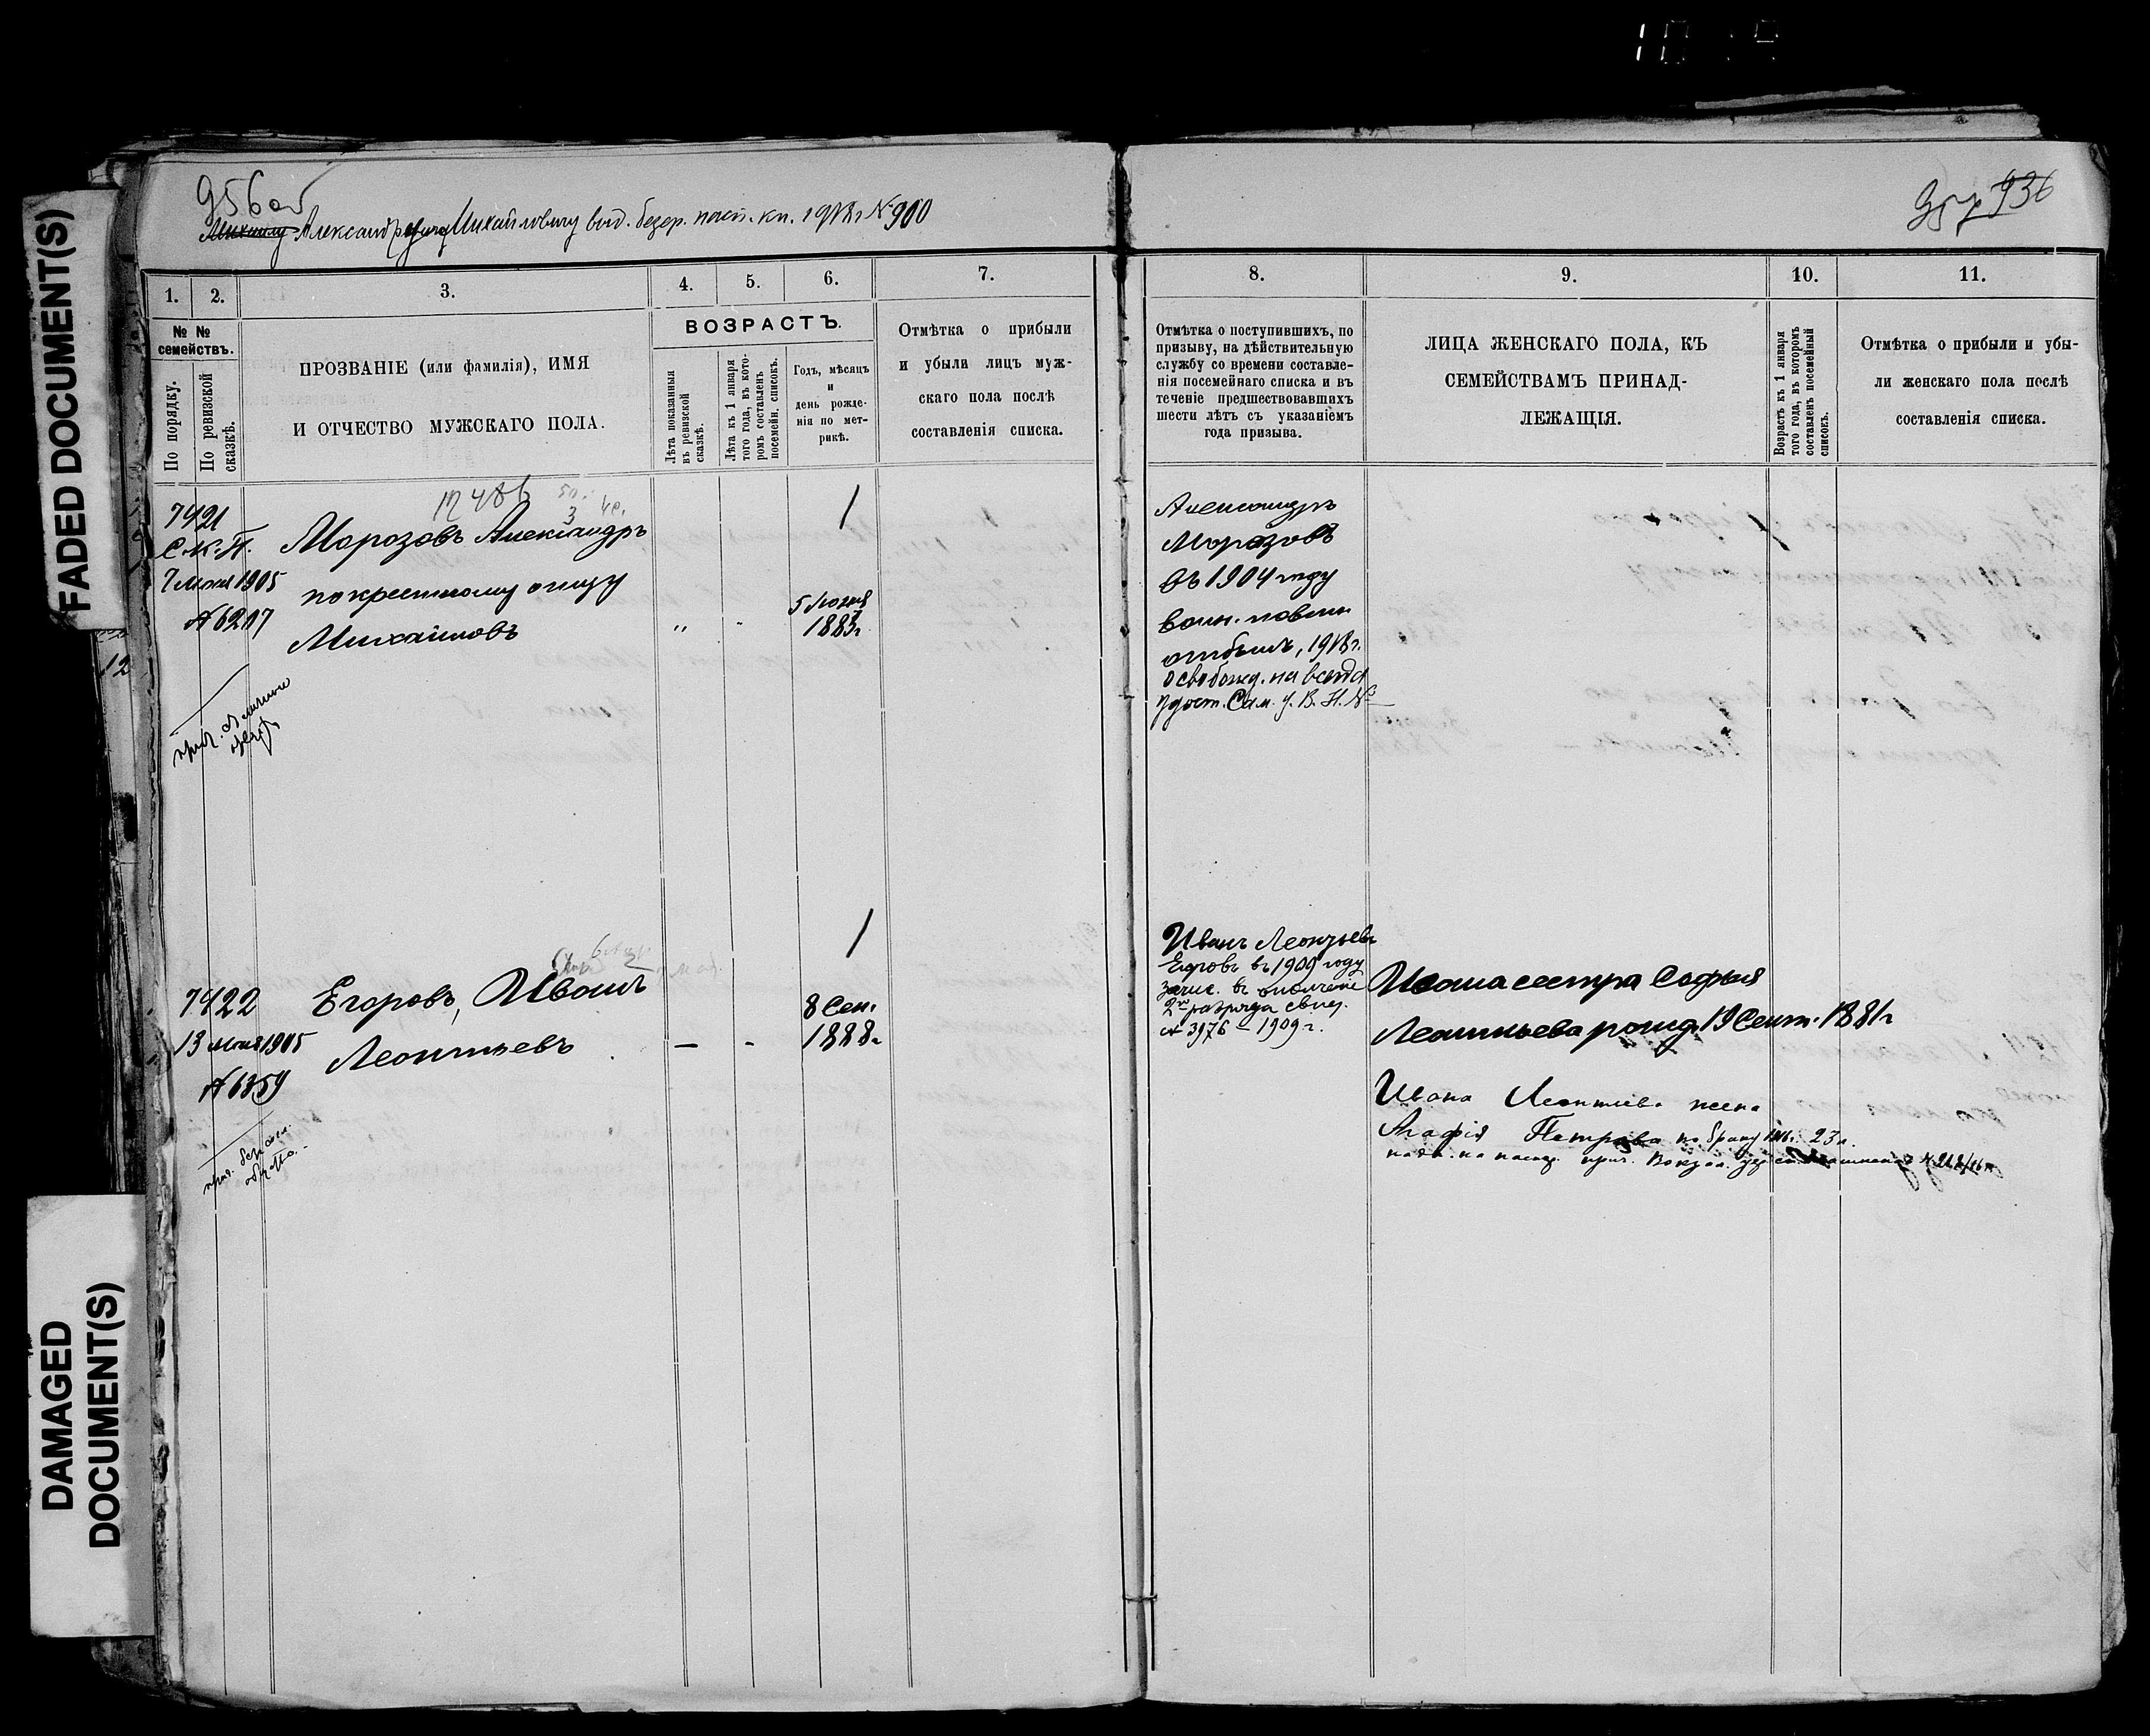 FADED DOCUMENT(S)
DAMAGED
DOCUMENT(S)
956об
Михаилу Александру Михайловичу выд. безср. пасп. кн. 1918 г № 900
1.
2.
3.
4.
5.
6.
7.
№ № семействъ.
По порядку.
По ревизской сказкѣ.
ПРОЗВАНІЕ (или фамилія), ИМЯ
И ОТЧЕСТВО МУЖСКАГО ПОЛА.
ВОЗРАСТЪ.
Лѣта показанныя
въ ревизской
сказкѣ.
Лѣта къ 1 января
того года, въ кото-
ромъ составленъ
посемейн. списокъ.
Годъ, мѣсяцъ
и
день рожде-
нія по мет-
рикѣ.
Отмѣтка о прибыли
и убыли лицъ муж-
скаго пола послѣ
составленія списка.
7421
С.К.П.
7 Июня 1905
№ 6217
Морозовъ Александръ
по крестному отцу
Михаиловъ
5 Июня
1883г.
7422
13 1905
№ 6359
Егоровъ, Иванъ
Леонтьевъ
8 Сен.
1888г
957 936
8.
9.
10.
11.
Отмѣтка о поступившихъ, по
призыву, на дѣйствительную
службу со времени составле-
нія посемейнаго списка и въ
теченіе предшествовавшихъ
шести лѣтъ съ указаніемъ
года призыва.
ЛИЦА ЖЕНСКАГО ПОЛА, КЪ
СЕМЕЙСТВАМЪ ПРИНАД-
ЛЕЖАЩІЯ.
Возрастъ къ 1 января
того года, въ которомъ
составленъ посемейный
списокъ.
Отмѣтка о прибыли и убы-
ли женскаго пола послѣ
составленія списка.
Александръ
Морозовъ
въ 1904 году
воин. повин
отбылъ, 1918г.
освобожд. на всегда
удост. Сам. У. В. Н. №
Иванъ Леонтьевъ
Егоровъ въ 1909 году
зачис. въ ополчение
2го разряда свид.
№ 3976 – 1909 г.
Ивана сестра Софья
Леонтьева рожд. 19 Сент. 1881г
Ивана Леонтьева жена
Агафія Петрова по браку 1916г. 23 л.